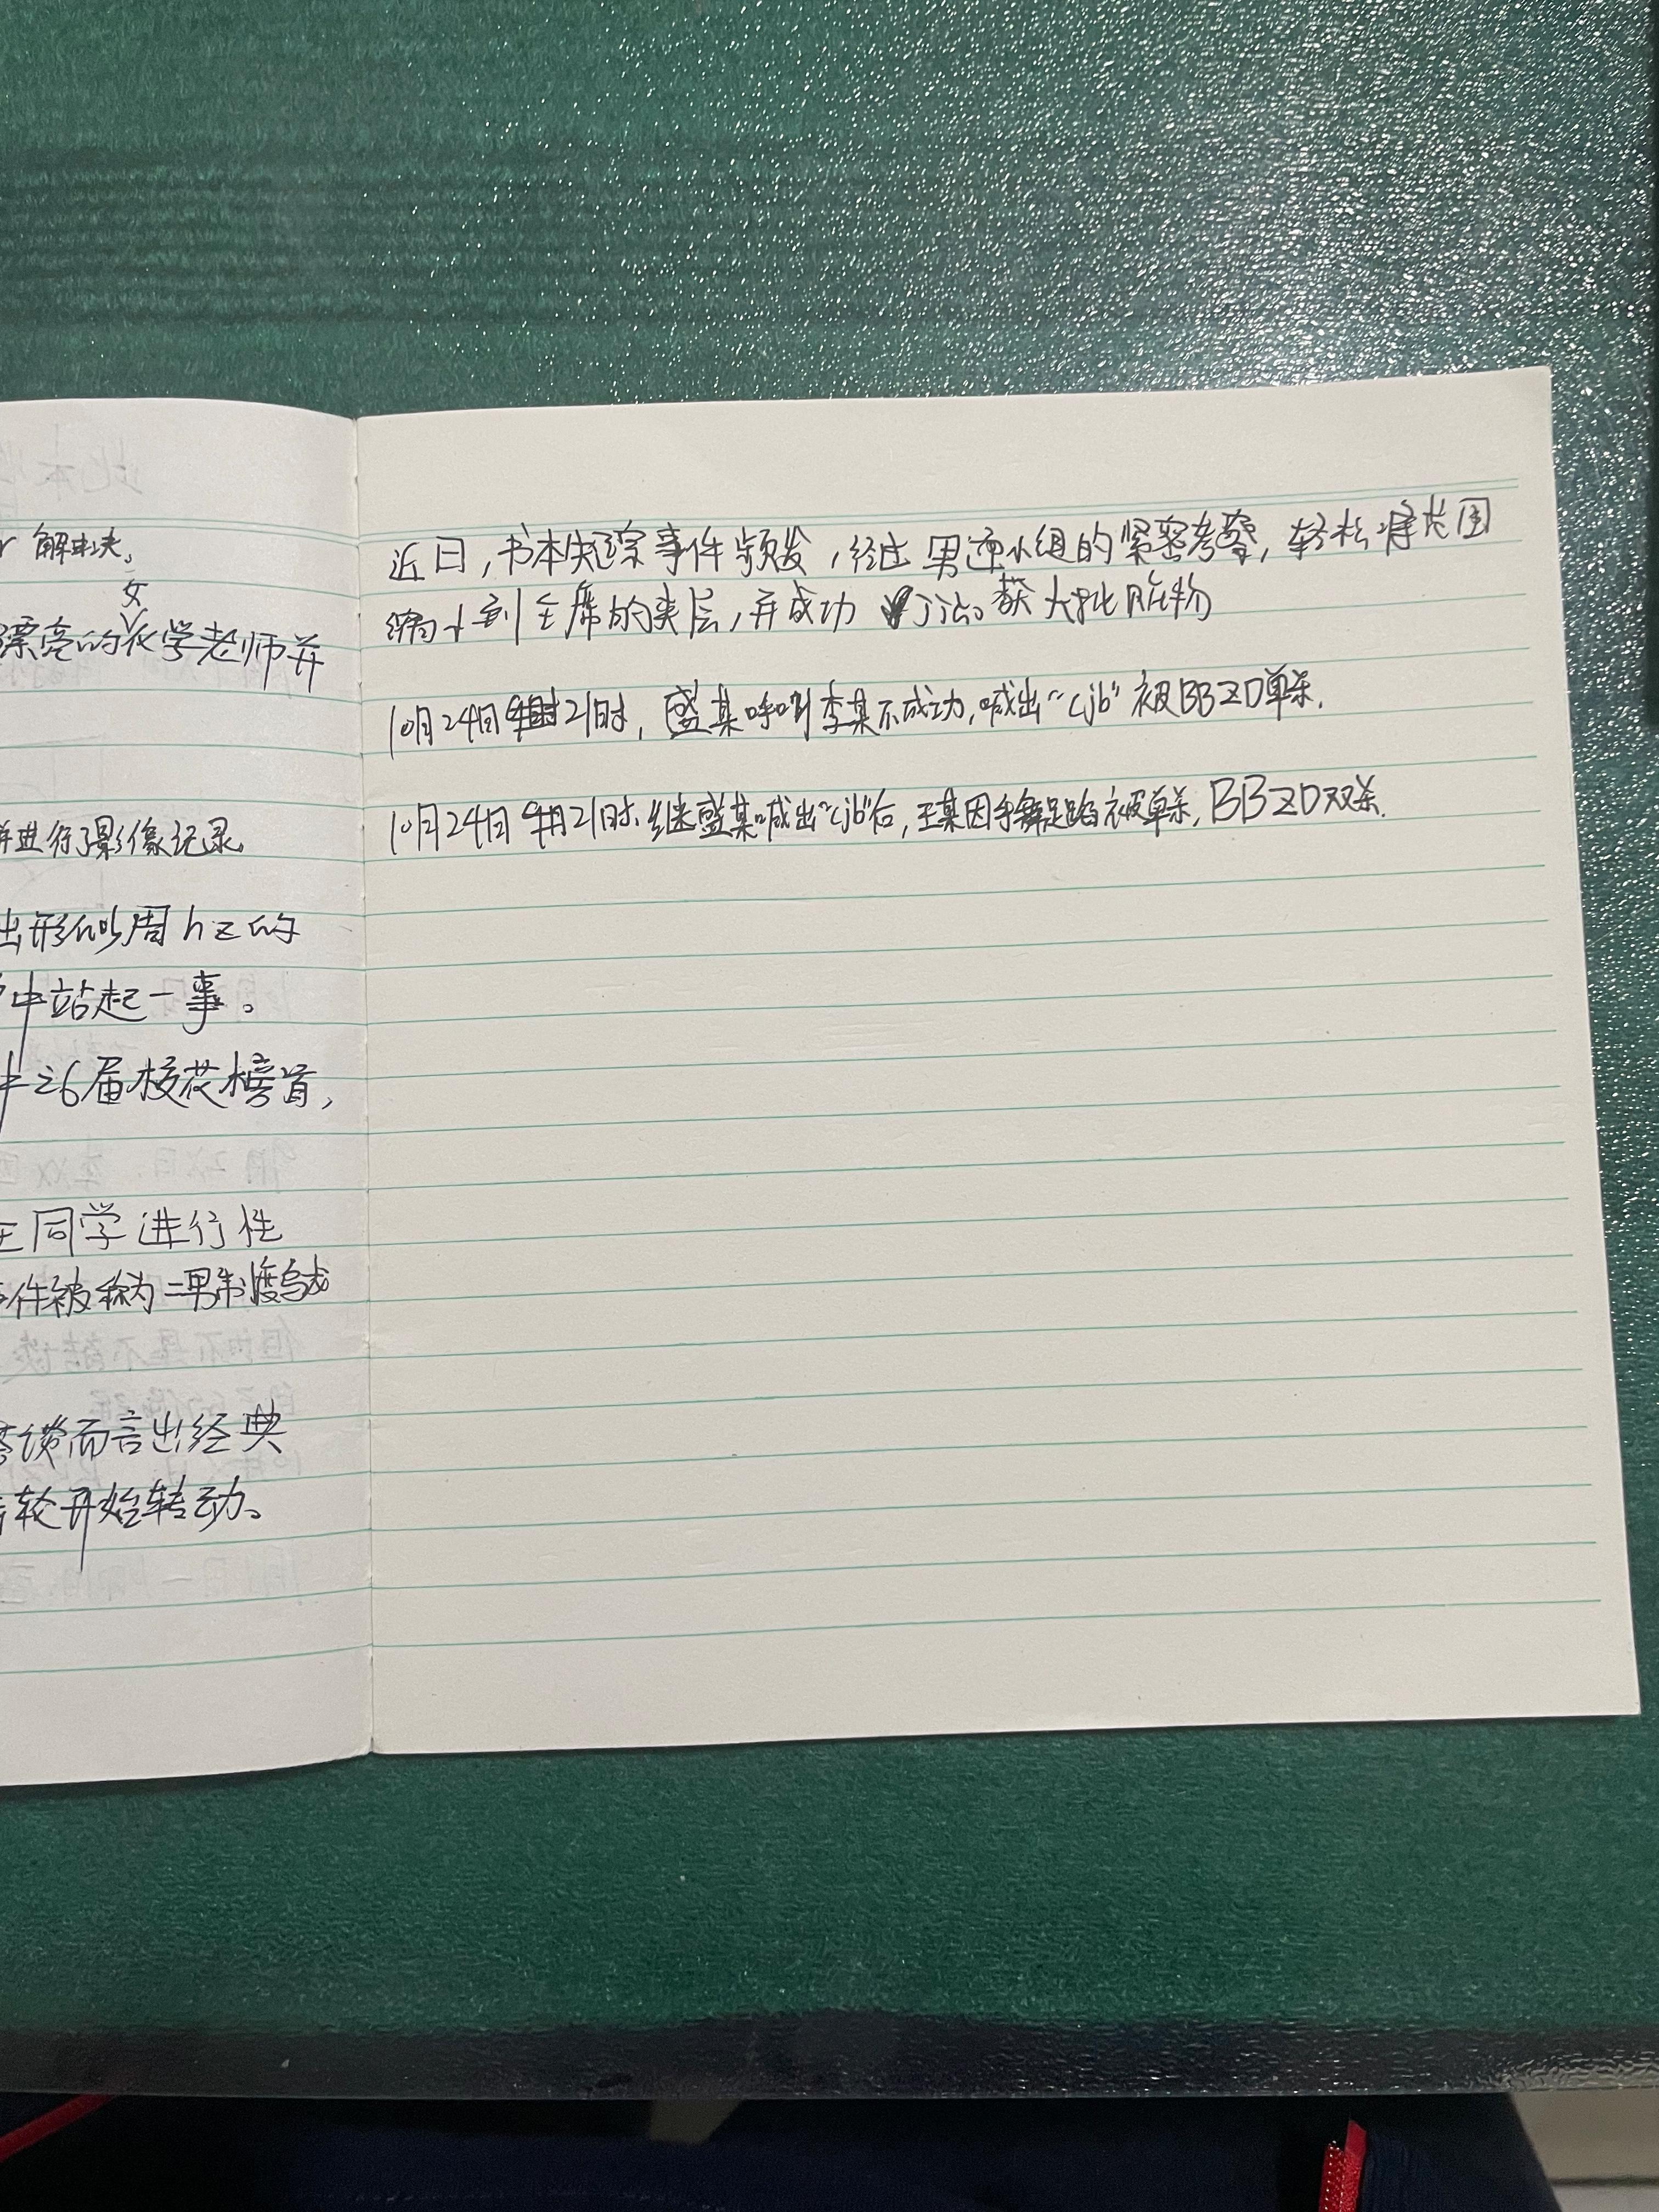 解决。
女
漂亮的化学老师并
并进行了影像记录。
出形似周hz的
中站起一事。
26届校花榜首,
同学进行性
件被称为二男制度
而言出经典
轮开始转动。
近日,书本失踪事件频发,经过男寝小组的紧密考察,轻松将范围
缩小到主席的夹层,并成功缴获大批赃物
10月24日 21时, 盛某呼叫李某不成功,喊出“cjb”被BBZD单杀.
10月24日 21时,继盛某喊出“cjb”后,王某因手舞足蹈被单杀,BBZD双杀.